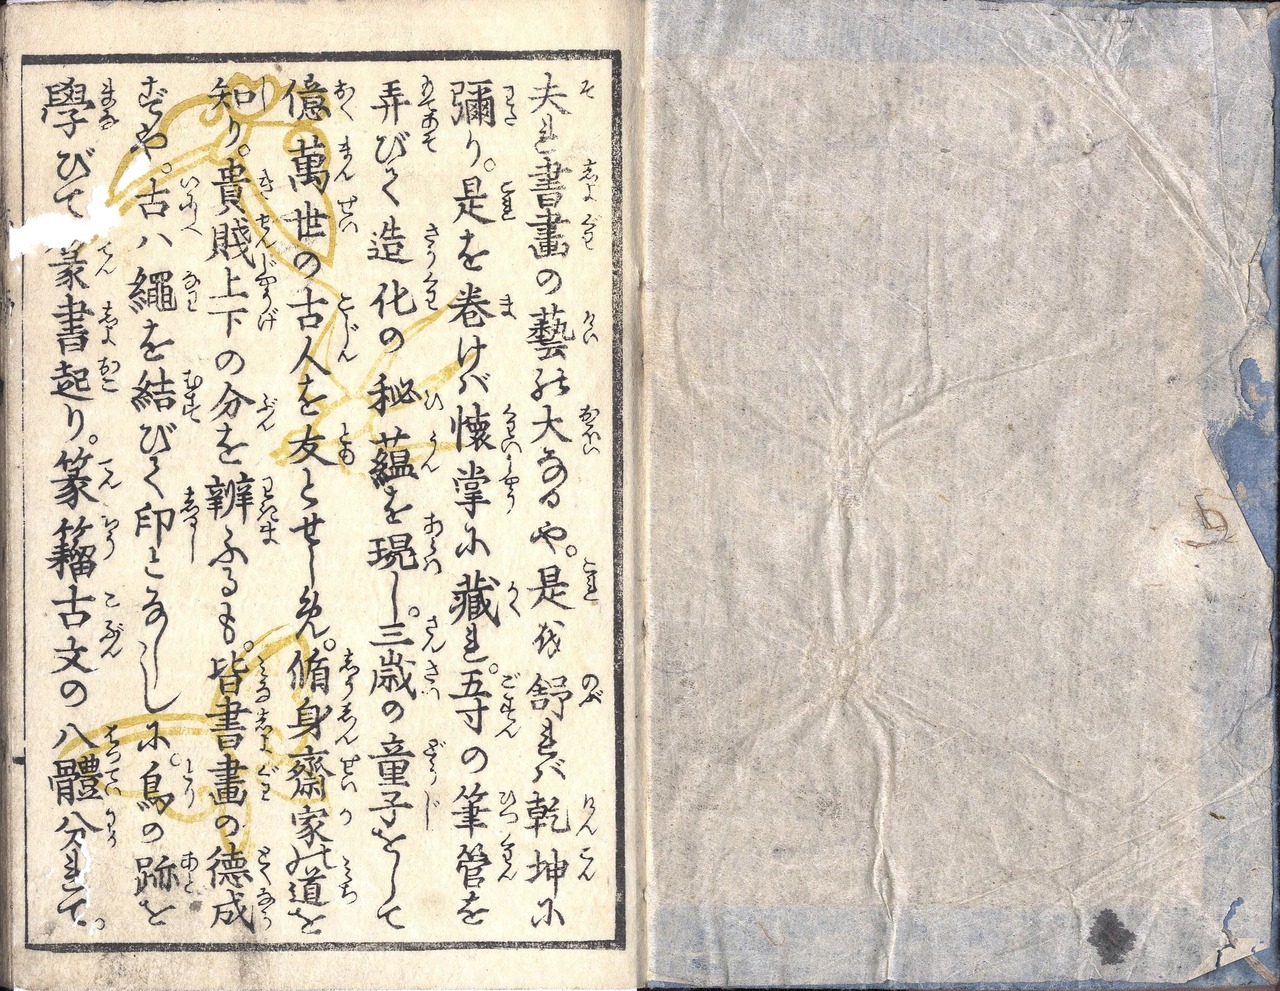 夫れ書畫の藝の大なるや。是を舒れバ乾坤に
彌り。是を卷けバ懷掌に藏れ。五寸の筆管を
弄びて造化の秘蘊を現し。三歳の童子をして
億萬世の古人を友とせしめ。脩身齋家の道を
知り。貴賤上下の分を辨ふるも。皆書畫の德成
ずや。古ハ繩を結びて印となししに。鳥の跡を
學びて篆書起り。篆籀古文の八體分れて。